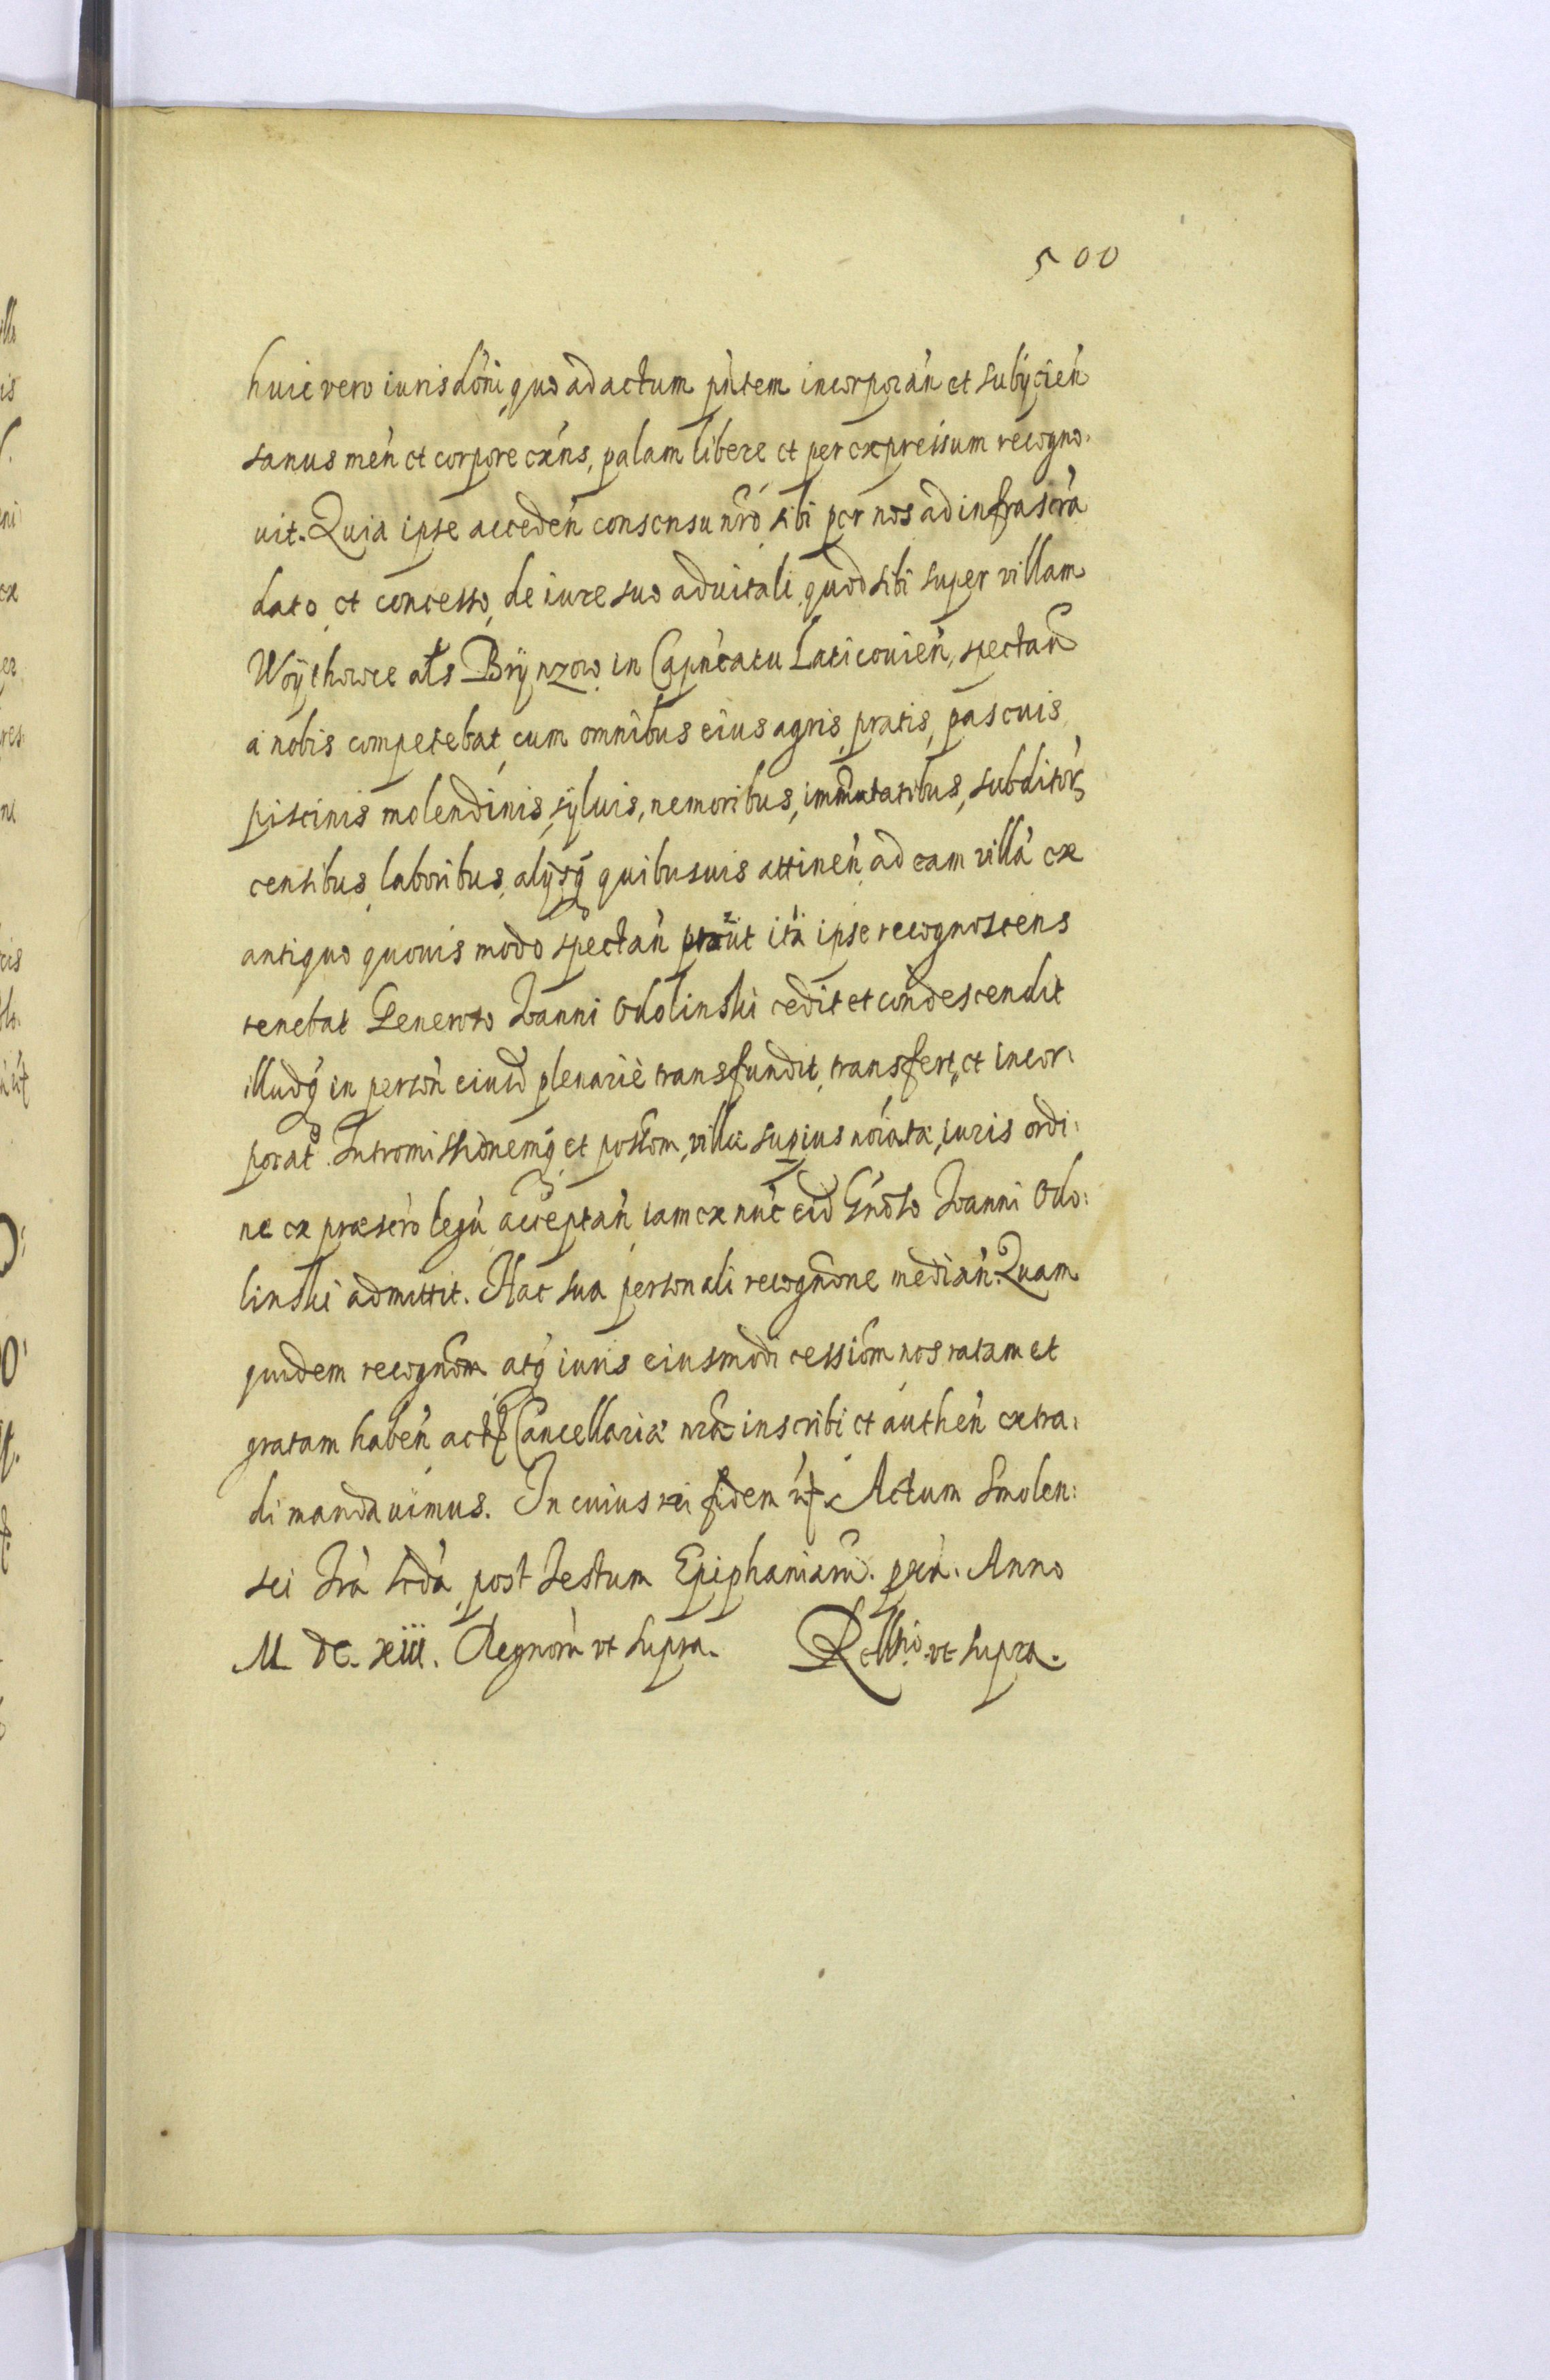 500
huic vero iurisdōni, quo ad actum pn̄tem incorporan̄ et subÿcien̄
sanus men̄ et corpore exn̄s, palam libere et per expressum recogno-
uit. Quia ipse acceden̄ consensu nr̄o sibi per nos ad infrascr̄a
dato et concesso, de iure suo aduitali quod sibi super villam
Woÿthowce al̄s Brÿnzow in Capn̄eatu Laticouien̄, spectan̄
a nobis competebat, cum omnibus eius agris, pratis, pascuis
piscinis molendinis, sÿluis, nemoribus, immutatibus, subditor̄
censibus, laboribus, alÿsq́ quibusuis attinen̄ ad eam villā ex
antiquo quouis modo spectan̄ prout ita ipse recognoscens
tenebat Generoso Ioanni Odolinski cedit et condescendit
illudq́ in person̄ eiusd plenariè transfundit, transfert, et incor-
porat. Intromissionemq́ et possōm, villæ supius nōiatæ, iuris ordi-
ne ex præscr̄o legū acceptan̄ iam ex nūc eid Gn̄oso Ioanni Odo-
linski admittit. Hac sua personali recogn̄one median̄. Quam
quidem recognōm atq́ iuris eiusmodi cessiōm nos ratam et
gratam haben̄ actis Cancellariæ nr̄æ inscribi et authen̄ extra-
di mandauimus. In cuius rei fidem
 Actum Smolen-
sci fr̄a scdā post festum Epiphaniarū. pxā. Anno
M DC xiii. Regnorū vt supra. Rellatio vt supra.